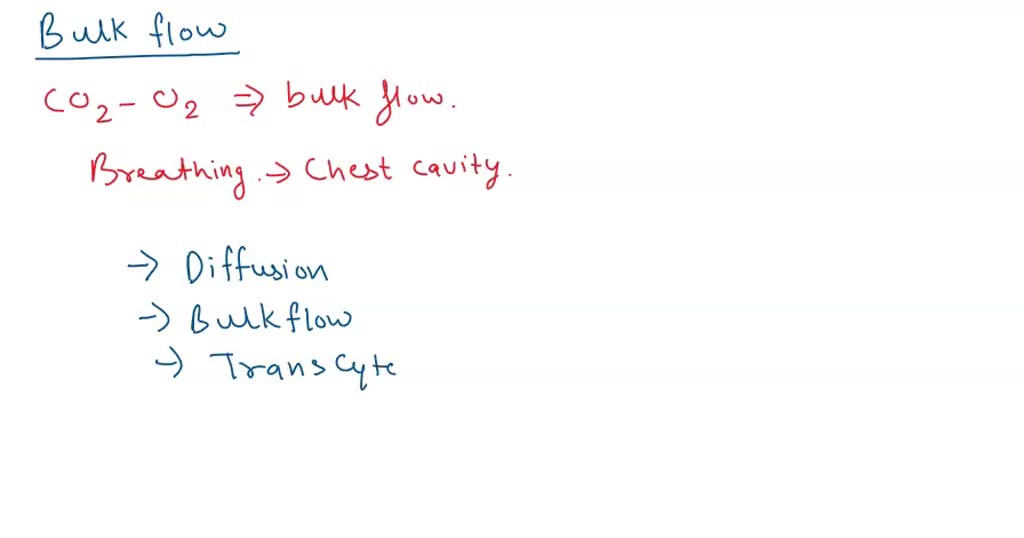 Bulk flow
CO2 - O2 ⇒ bulk flow.
Breathing. → Chest cavity.
→ Diffusion
→ Bulkflow
→ Transcyte